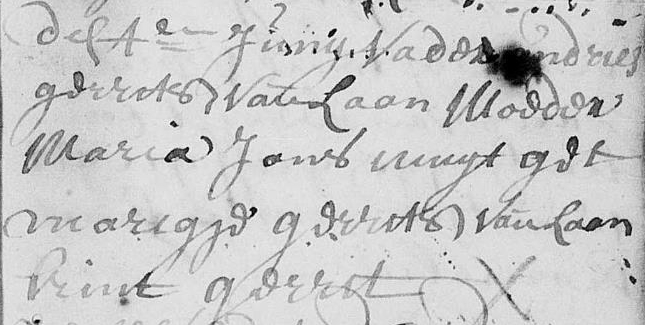 del 4en Juny Vader Andries
gerrets Van Laan Moeder
Maria Jans nuyt get
marigje gerrets Van Laan
kint gerret